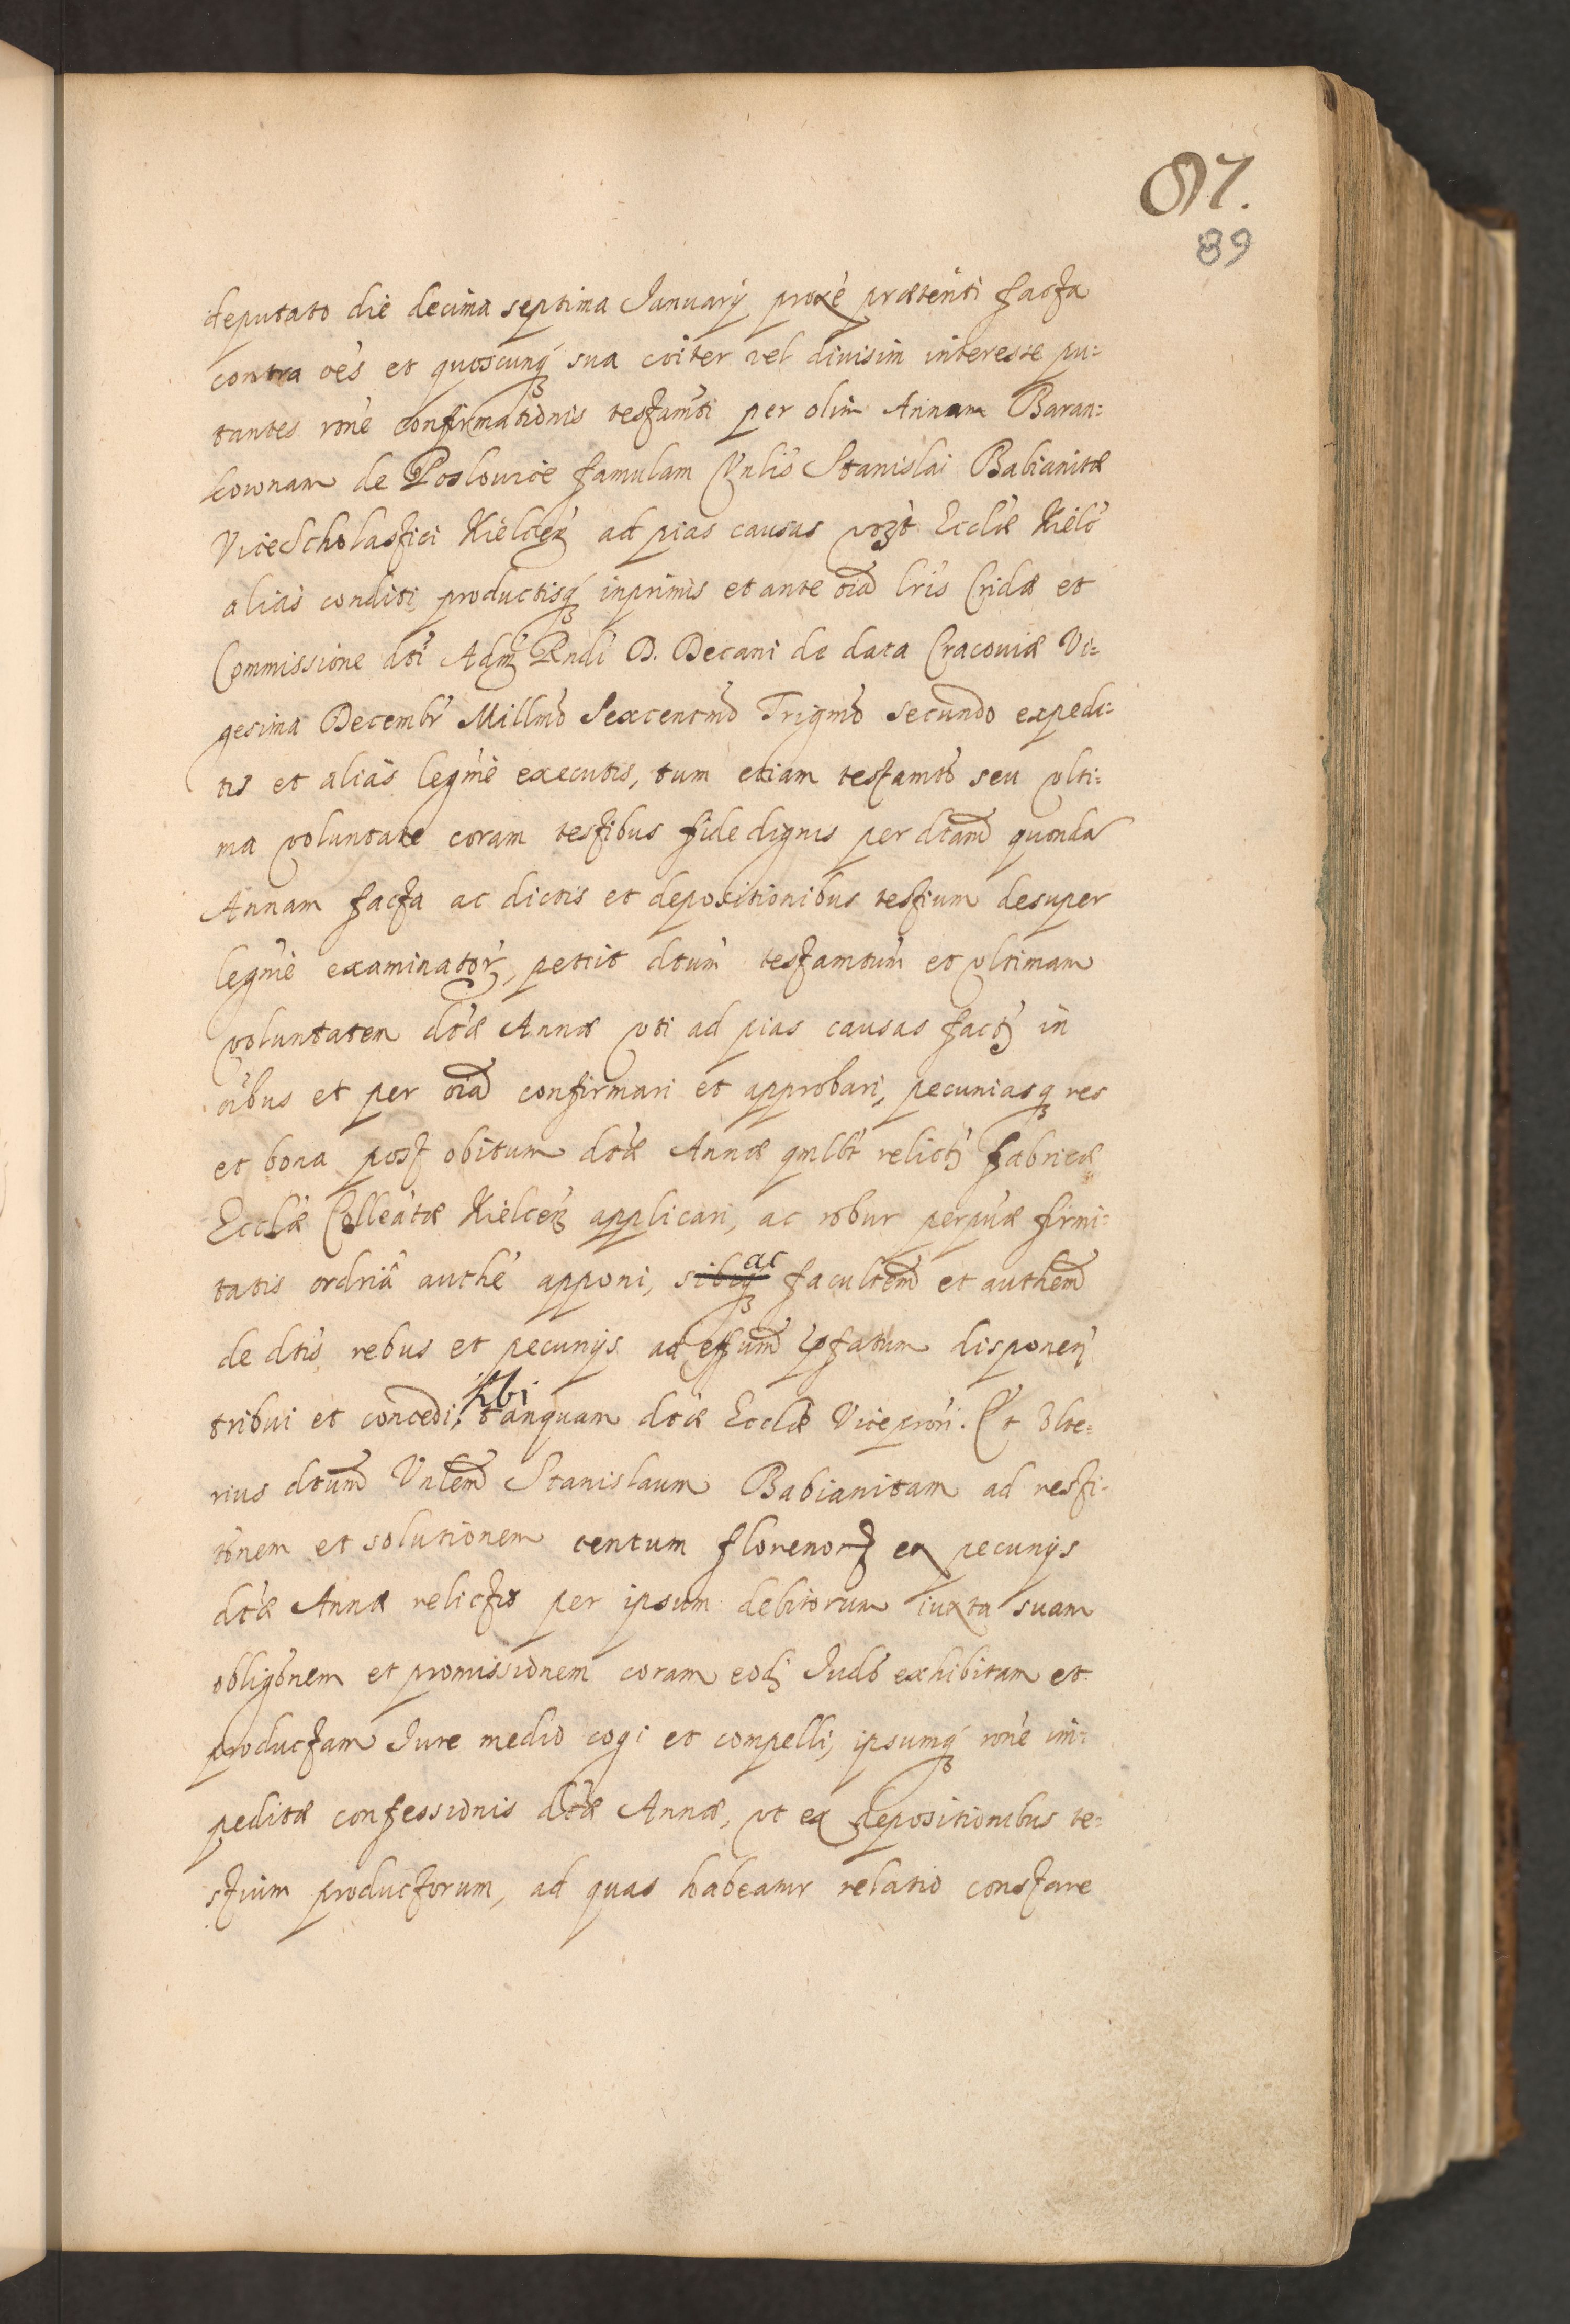 87.
89
deputato die decima septima Januarij proxè præteriti facta
contra oēs et quoscunq́ȝ sua cōiter vel diuisim interesse pu=
tantes rōne confirmationis testam̄ti per olim Annam Baran=
kownam de Poslovice famulam Vnlis Stanislai Babianitæ
ViceScholastici Kielceñ ad pias causas Eccłiæ Kielc̄
alias conditi, productisq́ȝ inprimis et ante oīa lr̄is Cridæ et
Commissione dc̄ti Adm̄ Rndi D. Decani de data Cracouiæ Vi=
gesima Decembr̄ Millm̄o Sexcentm̄o Trigm̄o secundo expedi=
tis et alias legm̄è executis, tum etiam testamt̄o seu vlti=
ma voluntate coram testibus fide dignis per dc̄tam quonda
Annam facta ac dictis et depositionibus testium desuper
legm̄è examinator̄, petijt dc̄tum testamtum et vltimam
voluntatem dc̄tæ Annæ vti ad pias causas fact̄ in
oībus et per oīa confirmari et approbari, pecuniasqȝ res
et bona post obitum dc̄tæ Annæ qm̄lbt relict̄ fabricæ
Eccłiæ Colleātæ Kielceñ applicari, ac robur perpūæ firmi=
tatis ordriâ authē apponi, sibiq́ȝ ac facultem̄ et authem̄
de dc̄tis rebus et pecunijs ad effum̄ p̄fatum disponeñ
tribui et concedi, sibi tanquam dc̄tæ Eccłiæ Viceprōri. Et Vlte=
rius dc̄tum Vnlem̄ Stanislaum Babianitam ad resti=
tōnem et solutionem centum florenor̄ ex pecunijs
dc̄tæ Annæ relictis per ipsum debitorum iuxta suam
obligōnem et promissionem coram eod̄ Judō exhibitam et
productam Jure medio cogi et compelli, ipsumq́ȝ rōne im=
peditæ confessionis dc̄tæ Annæ, vt ex depositionibus te=
stium productorum, ad quas habeatur relatio constare